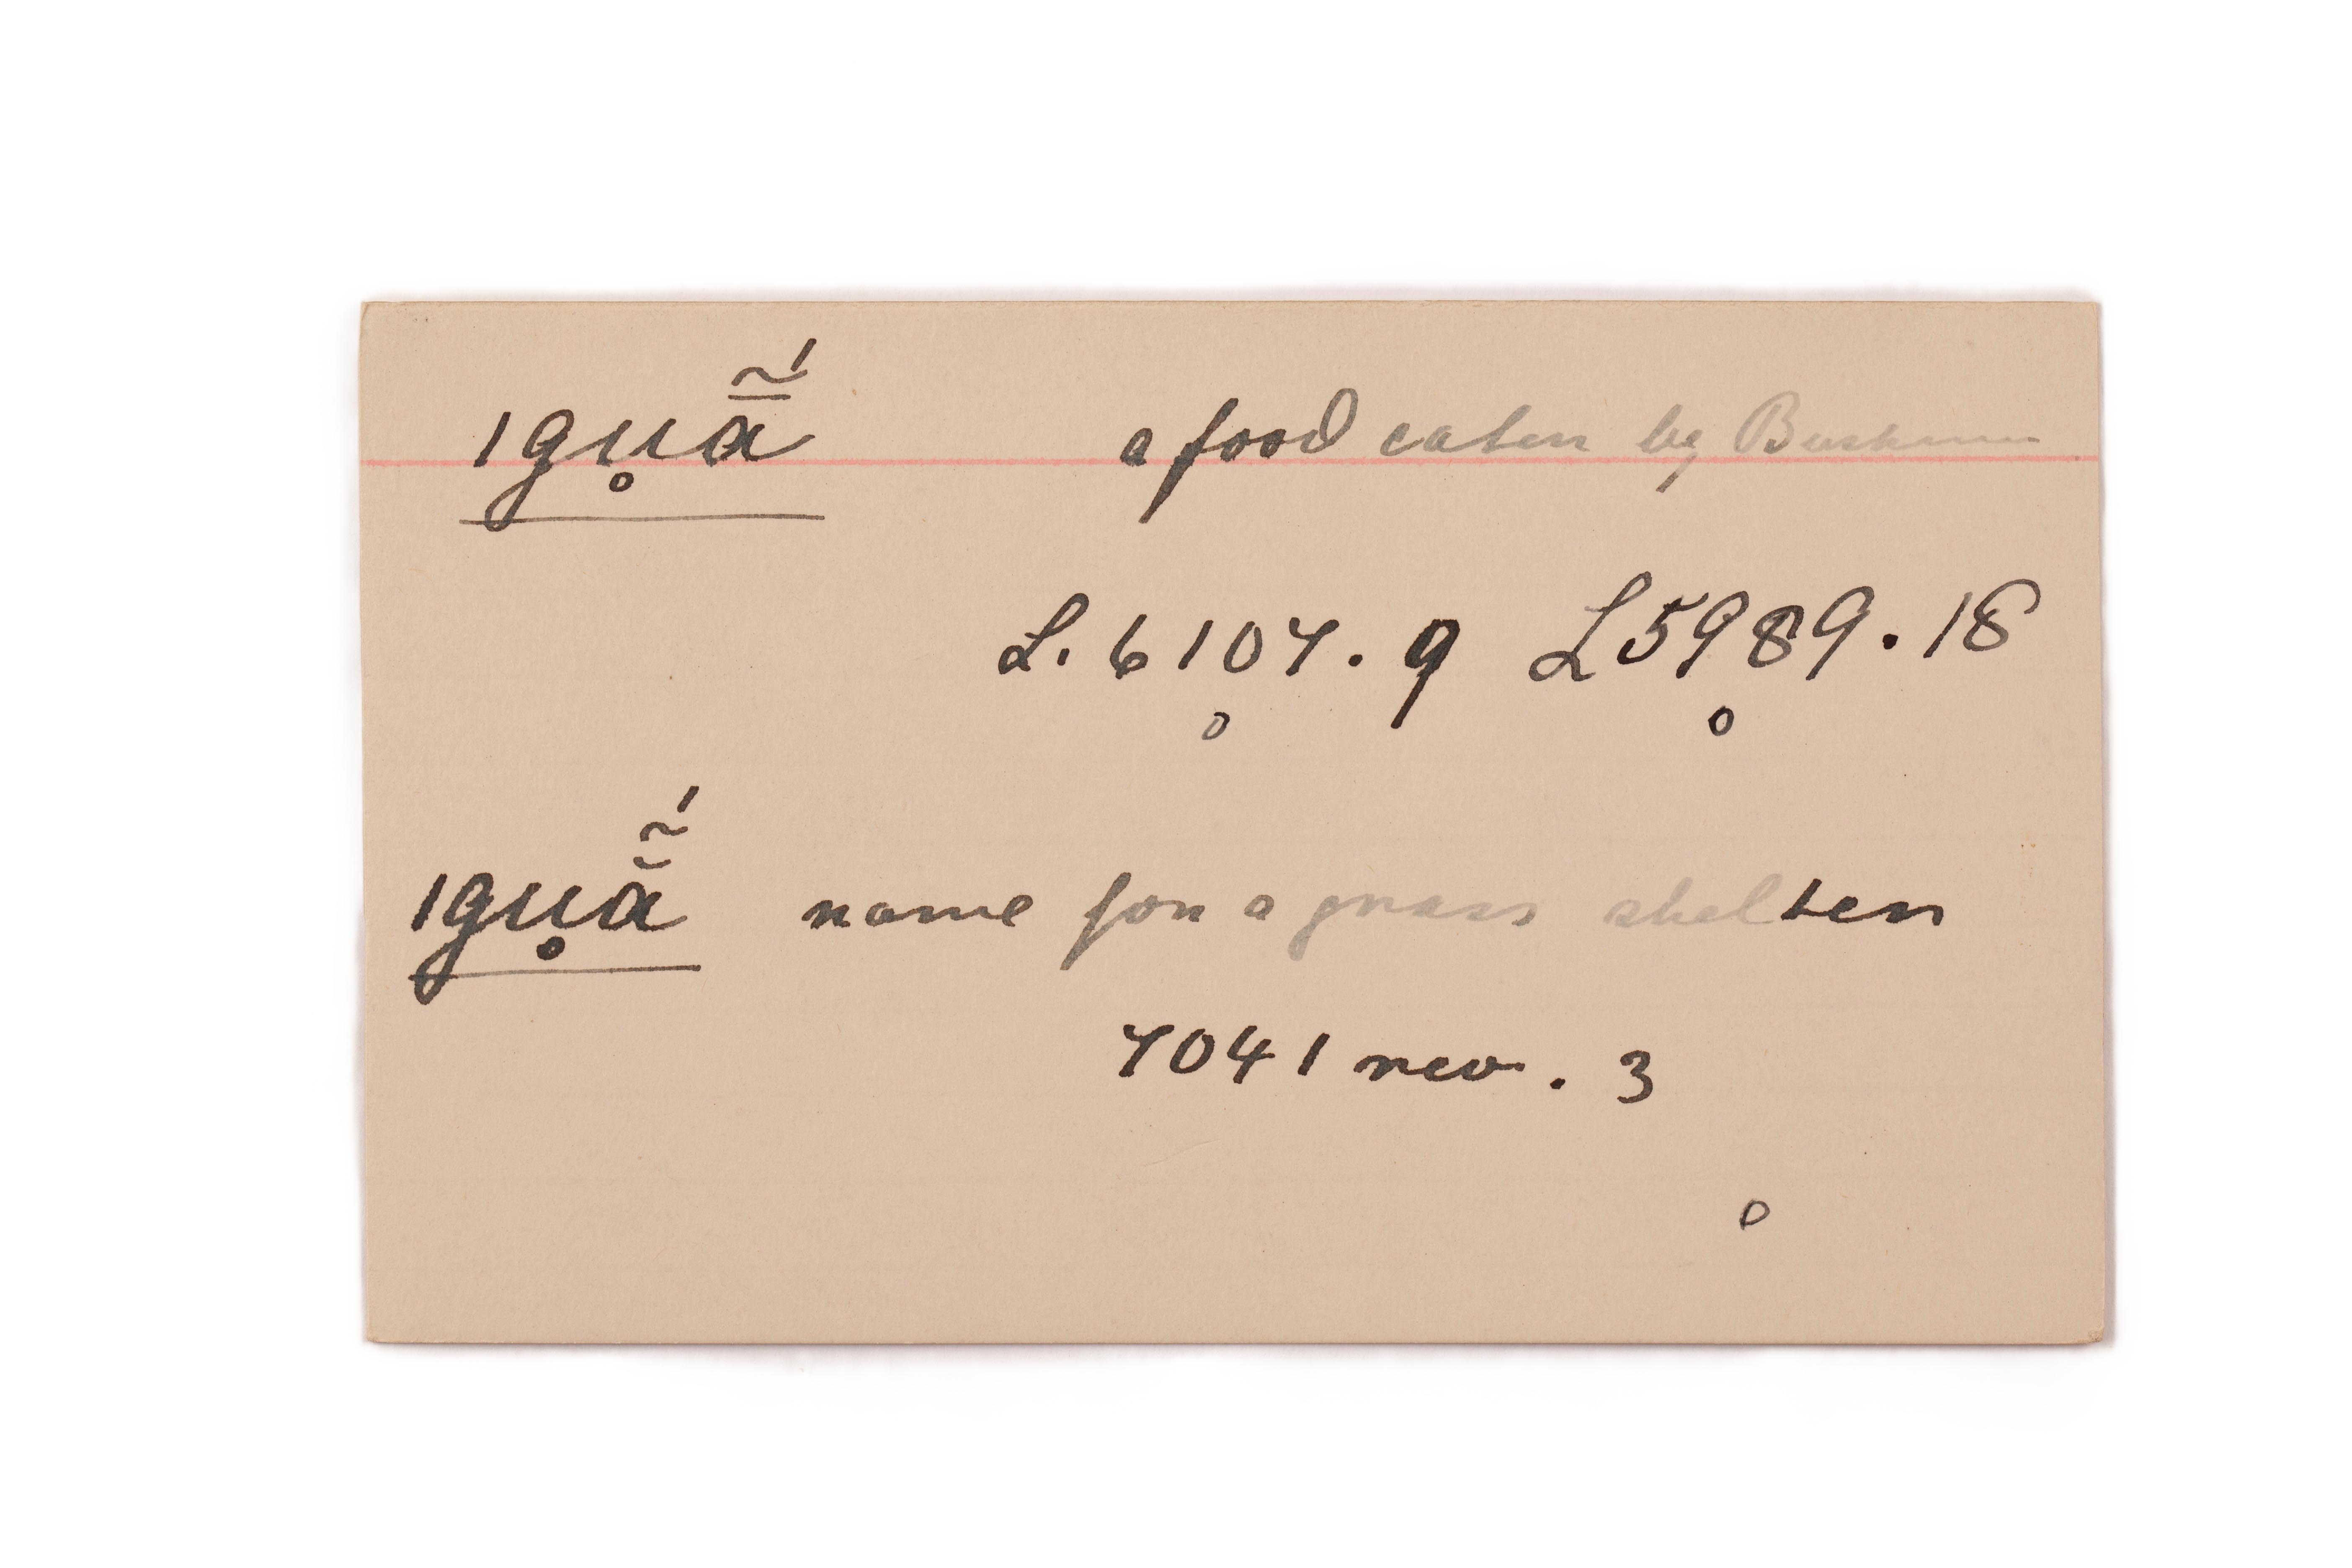 ǀgu̥ā̃́ a food eaten by Bushmen
L. 6107. 9 L5989. 18
o o
ǀgu̥ẵ́ name for a grass shelter
7041 rev. 3
o